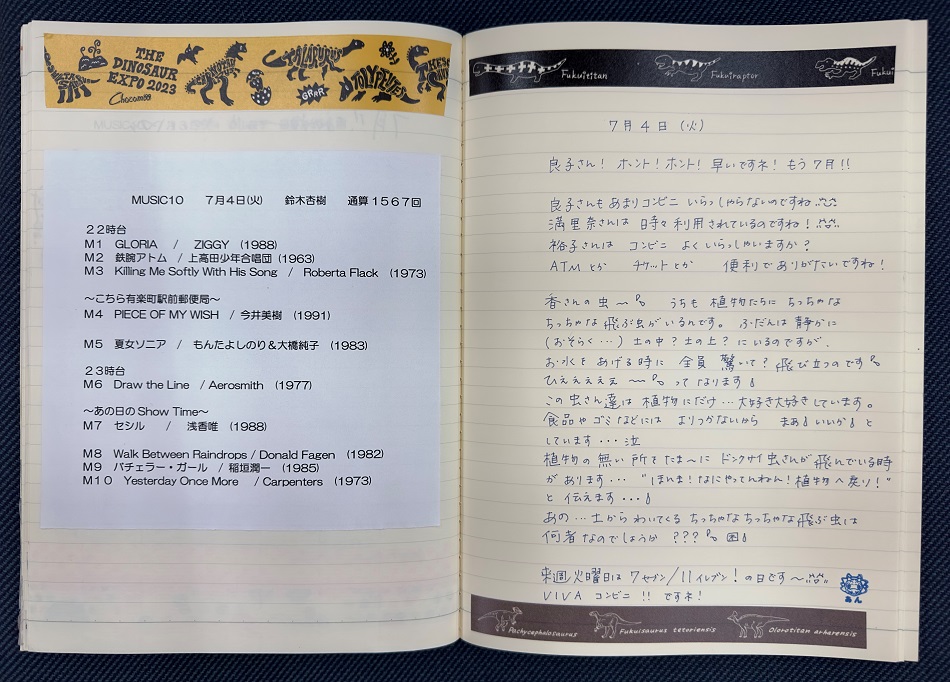 THE
DINOSAUR
EXPO 2023
GRRR
MUSIC10 7月4日(火) 鈴木杏樹 通算1567回
22時台
M1 GLORIA / ZIGGY (1988)
M2 鉄腕アトム / 上高田少年合唱団 (1963)
M3 Killing Me Softly With His Song / Roberta Flack (1973)
〜こちら有楽町駅前郵便局〜
M4 PIECE OF MY WISH / 今井美樹 (1991)
M5 夏女ソニア / もんたよしのり&大橋純子 (1983)
23時台
M6 Draw the Line / Aerosmith (1977)
〜あの日のShow Time〜
M7 セシル / 浅香唯 (1988)
M8 Walk Between Raindrops / Donald Fagen (1982)
M9 バチェラー・ガール / 稲垣潤一 (1985)
M10 Yesterday Once More / Carpenters (1973)
Fukuititan Fukuiraptor Fukui
7月4日(火)
良子さん! ホント! ホント! 早いですネ! もう7月!!
良子さんもあまりコンビニ いらっしゃらないのですね
満里奈さんは 時々利用されているのですね!
裕子さんは コンビニ よくいらっしゃいますか?
ATMとか チケットとか 便利でありがたいですね!
香さんの虫〜 うちも 植物たちに ちっちゃな
ちっちゃな 飛ぶ虫がいるんです。 ふだんは 静かに
(おそらく…) 土の中? 土の上? にいるのですが、
お水をあげる時に 全員 驚いて? 飛び立つのです
ひええええええ〜 ってなります!
この虫さん達は 植物にだけ…大好き大好きしています。
食品やゴミなどには よりつかないから まあ! いいか! と
しています・・・泣
植物の無い所でたま〜に ドンクサイ虫さんが 飛んでいる時
があります・・・ “ほんま! なにやってんねん! 植物へ戻り!”
と 伝えます・・・!
あの…土から わいてくる ちっちゃなちっちゃな 飛ぶ虫は
何者なのでしょうか ??? 困!
来週火曜日は 7セブン/11イレブン! の日です〜
VIVA コンビニ!! ですネ!
あん
Pachycephalosaurus Fukuisaurus tetoriensis Olorotitan arharensis